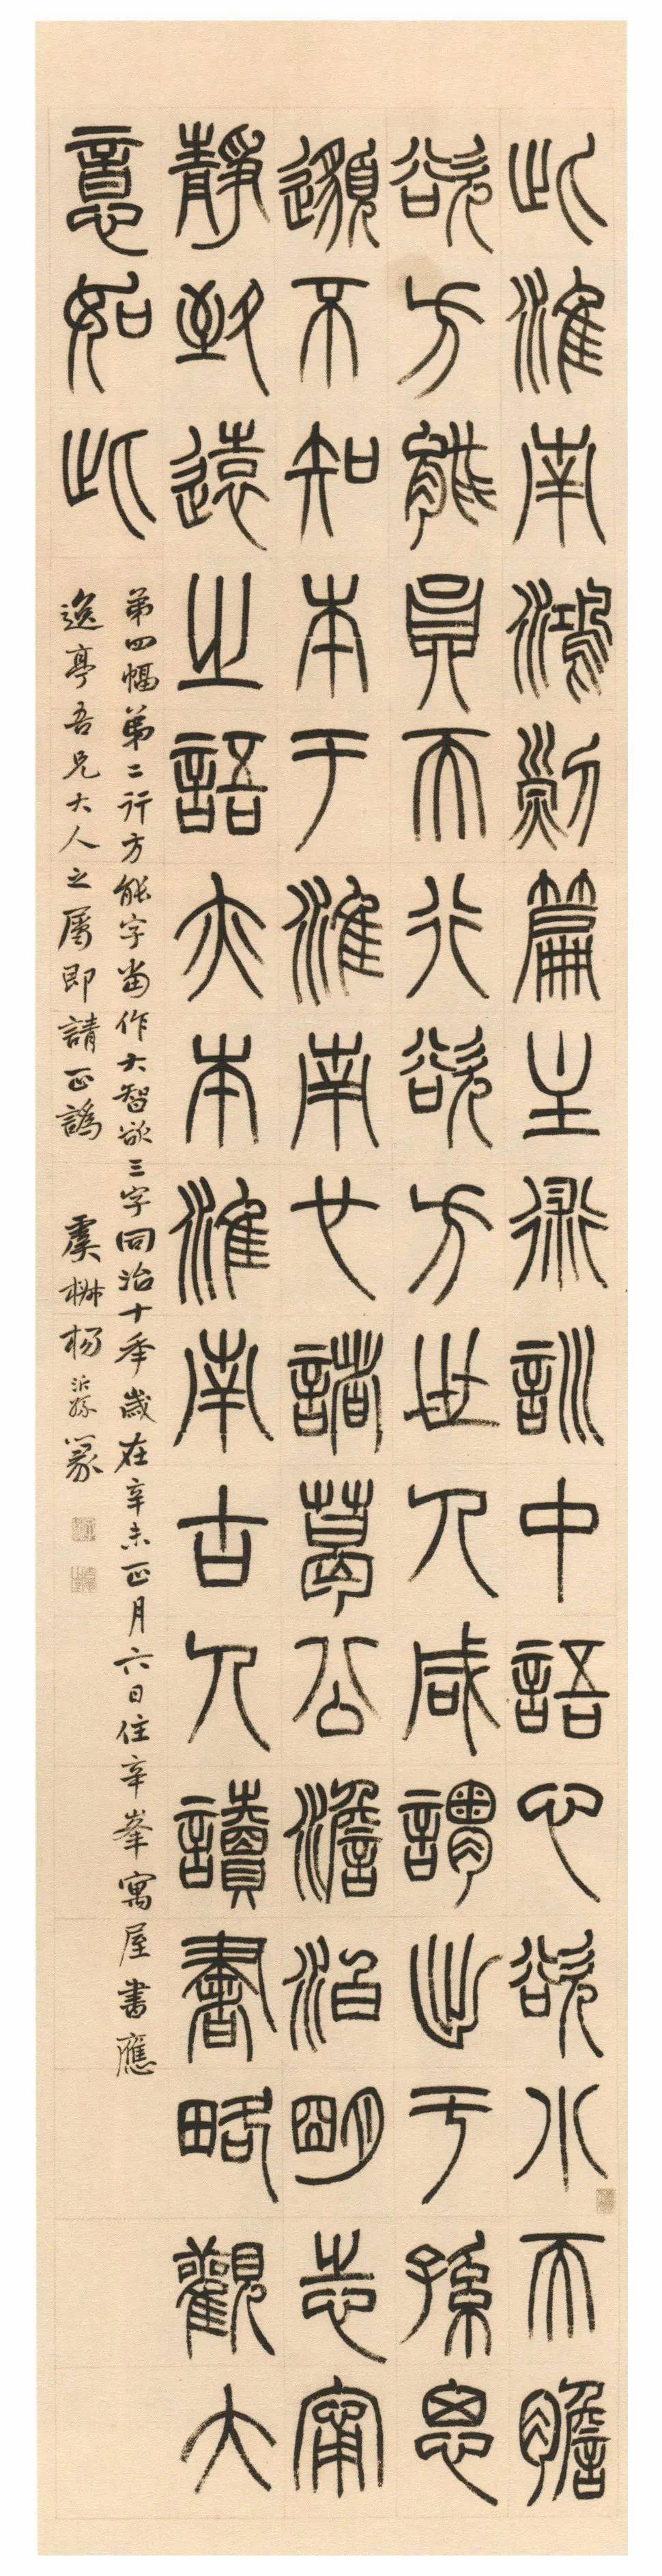 此淮南鴻烈篇主術訓中語心欲小而膽
欲方能員而行欲方世人咸謂出于孫思
邈不知本于淮南也諸葛公澹泊明志甯
靜致遠之語亦本淮南古人讀書略觀大
意如此
第四幅第二行方能字當作大智欲三字同治十年歲在辛未正月六日住辛峯寓屋書應
逸亭吾兄大人之屬即請正譌 虞楙楊沂孫篆